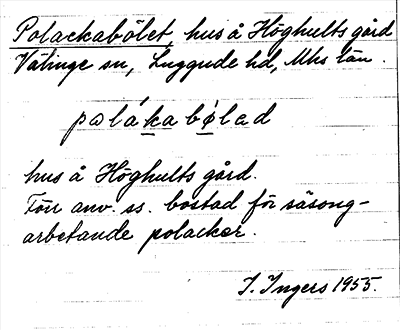 Polackabölet, hus å Höghults gård
Välinge sn, Luggude hd, Mhs län.
polákabølad
hus å Höghults gård.
Förr anv. ss. bostad för säsong-
arbetande polacker.
I. Ingers 1955.